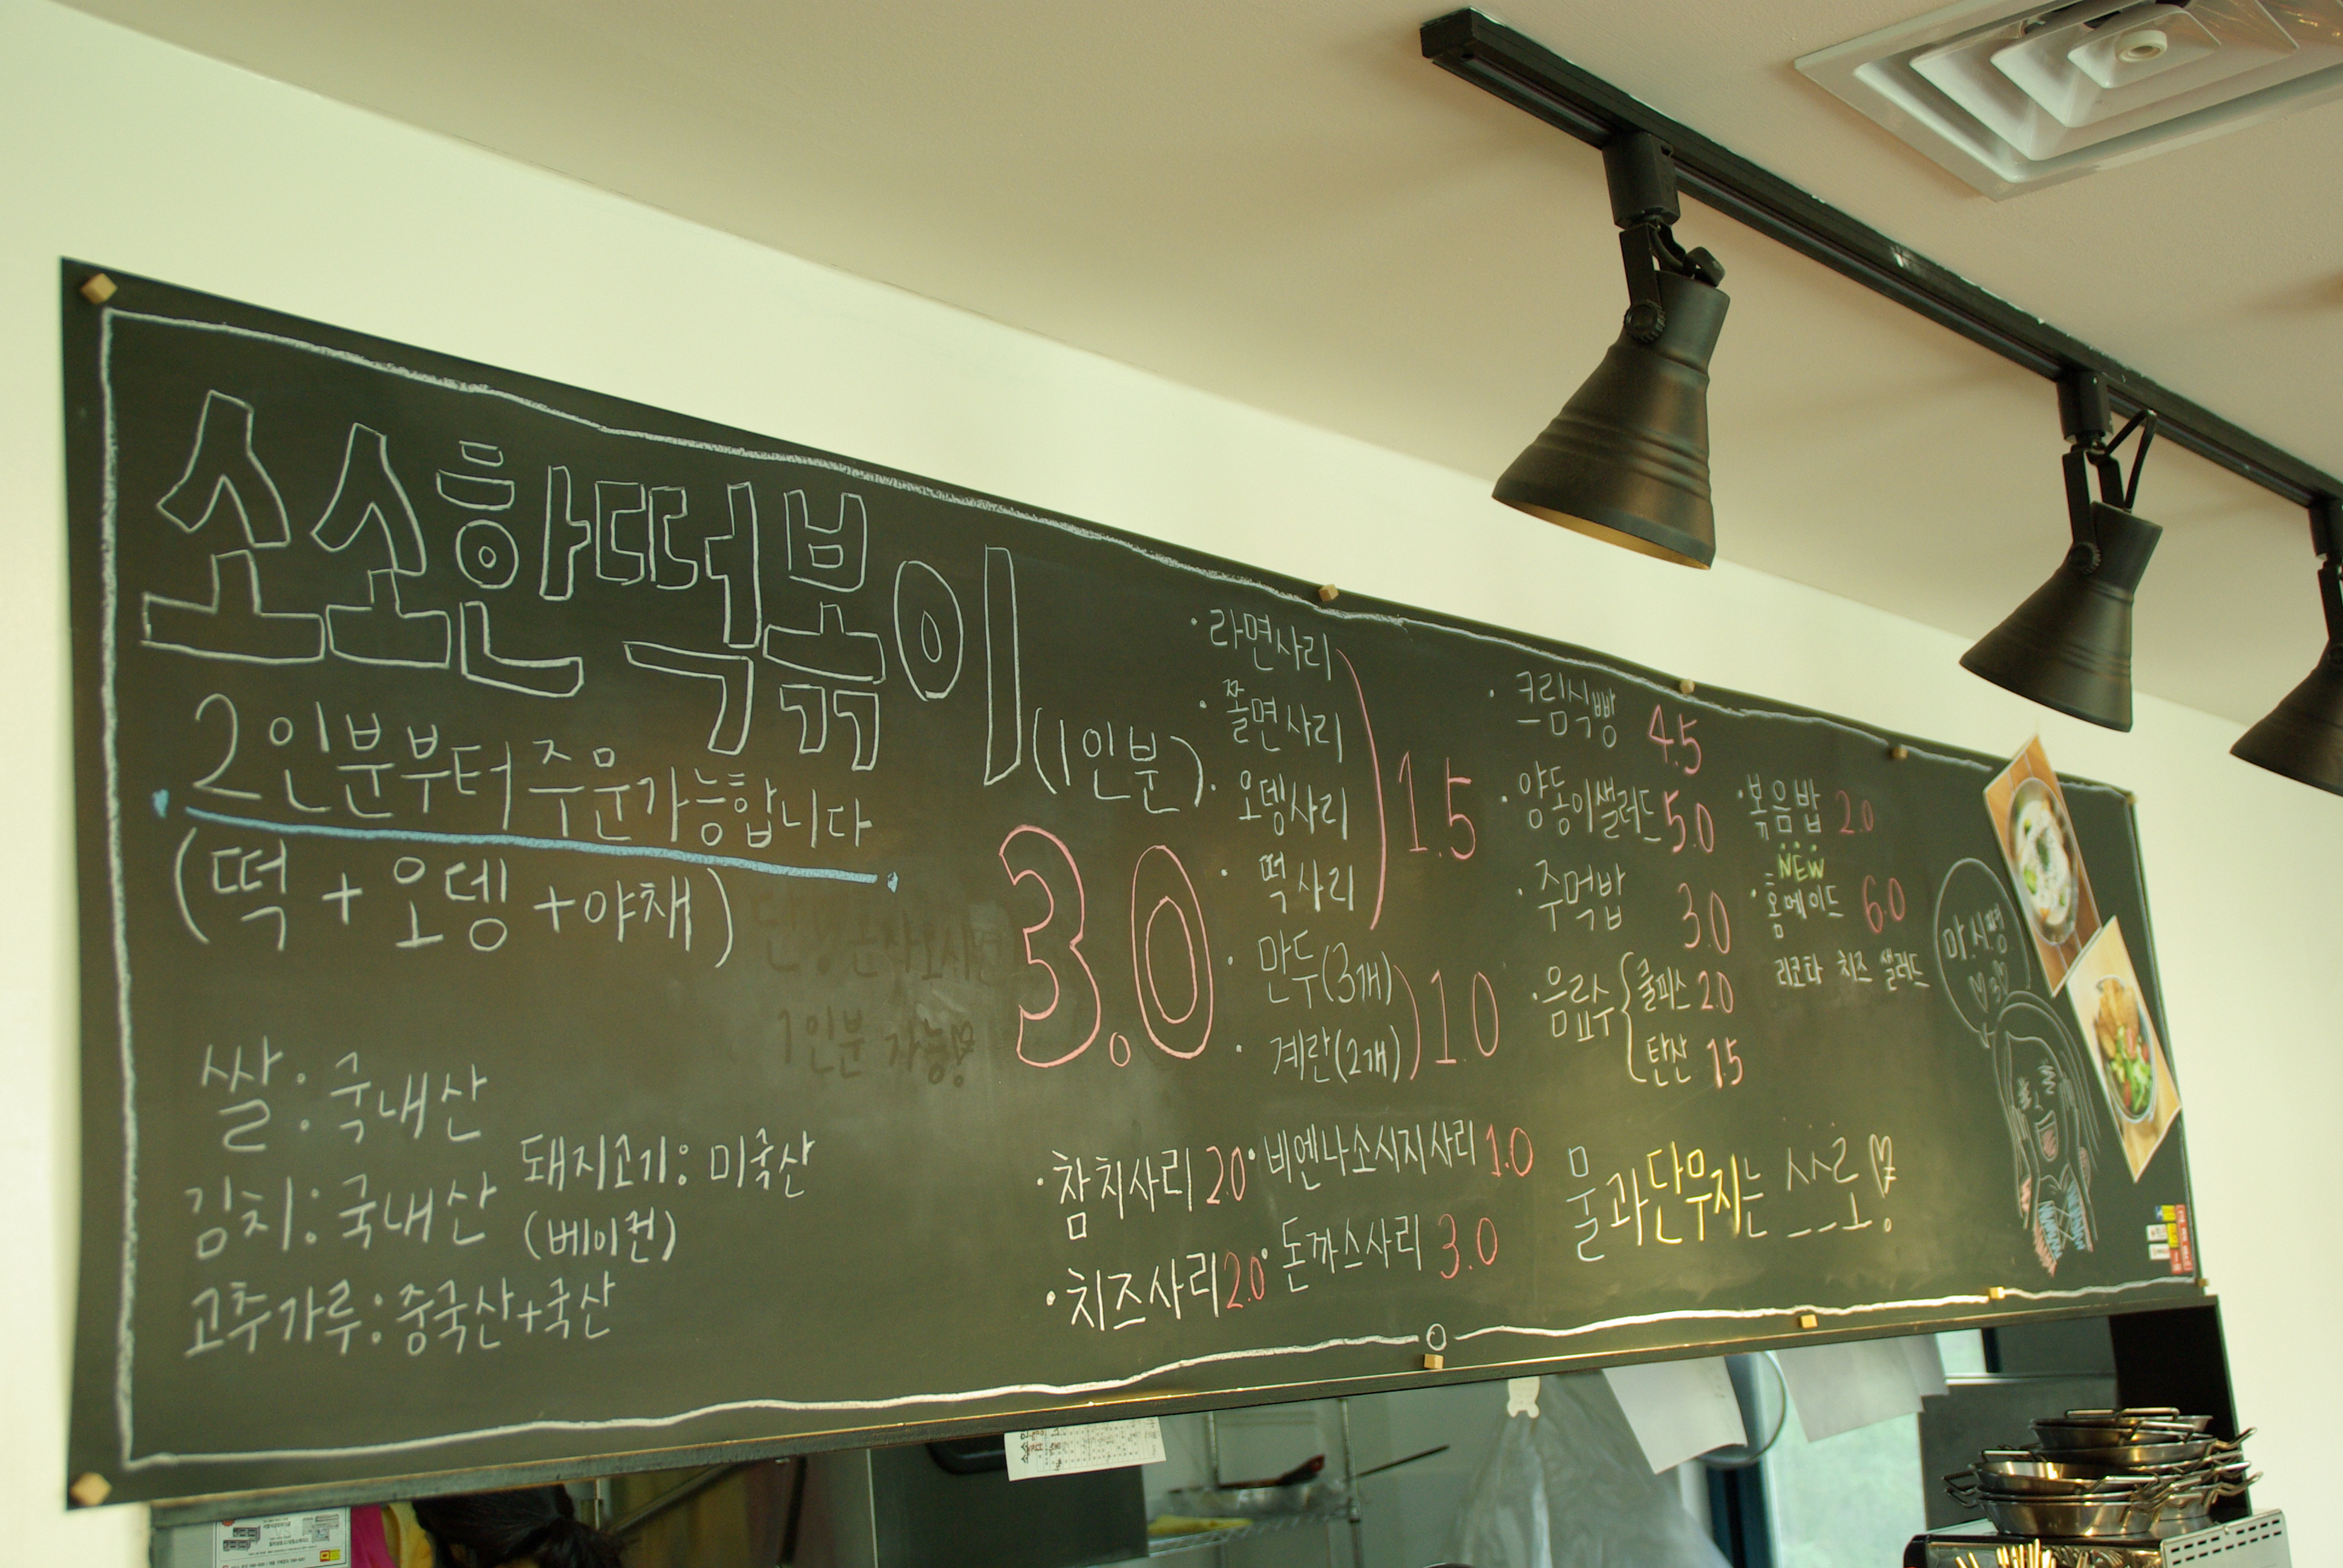 소소한떡볶이
(1인분)
3.0
2인분부터 주문가능합니다
(떡 + 오뎅 + 야채)
단, 혼자오시면
1인분 가능!
쌀 : 국내산
김치 : 국내산
돼지고기 : 미국산
(베이컨)
고추가루 : 중국산+국산
· 라면사리
· 쫄면사리
· 오뎅사리
· 떡사리
1.5
· 만두(3개)
· 계란(2개)
1.0
· 참치사리 2.0
· 비엔나소시지사리 1.0
· 치즈사리 2.0
· 돈까스사리 3.0
· 크림식빵 4.5
· 양동이샐러드 5.0
· 주먹밥 3.0
· 음료수 { 쿨피스 2.0
탄산 1.5
· 볶음밥 2.0
NEW
· 홈메이드 6.0
리코타 치즈 샐러드
물과 단무지는 셀프